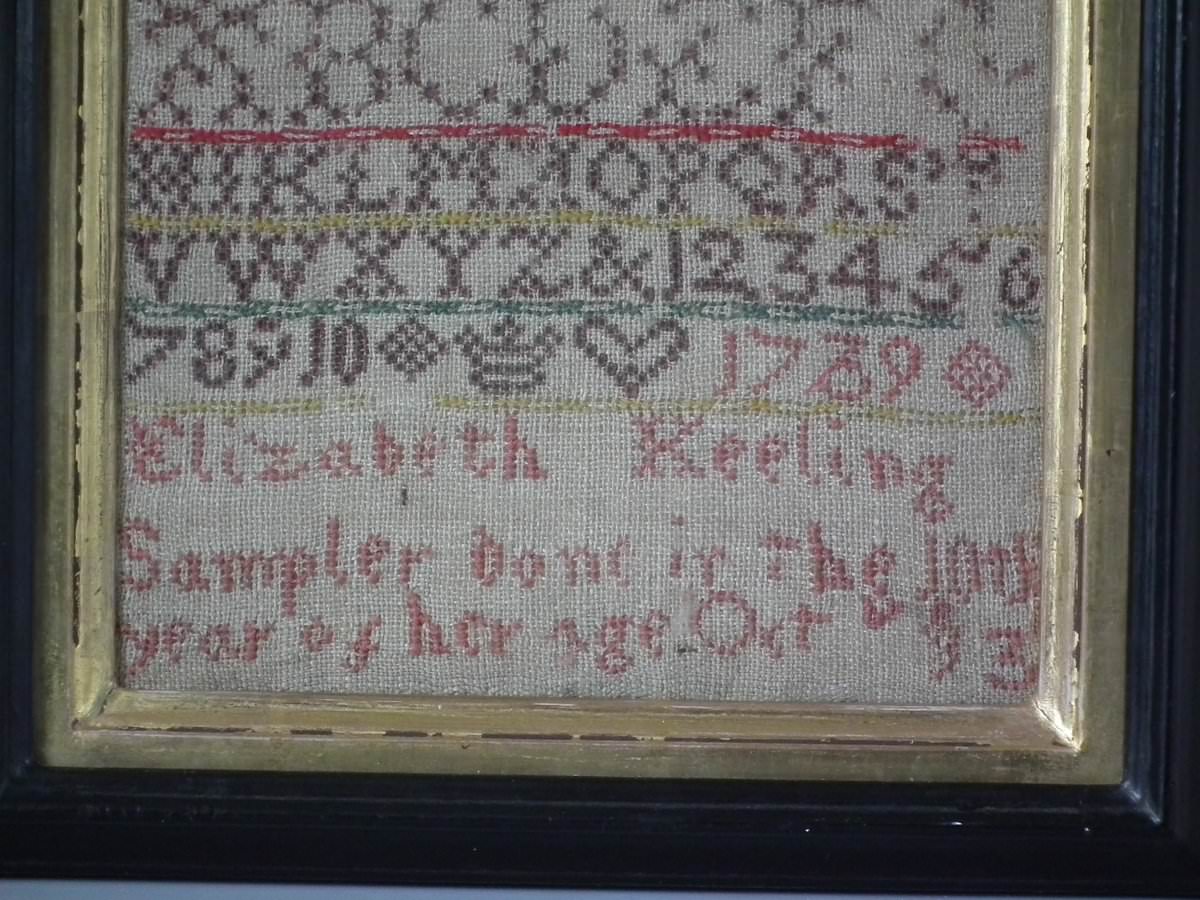 A B C D
I K L M N O P Q R S T
V W X Y Z & 1 2 3 4 5 6
7 8 9 10 1789
Elizabeth Keeling
Sampler done in the
year of her age Oct ye 3